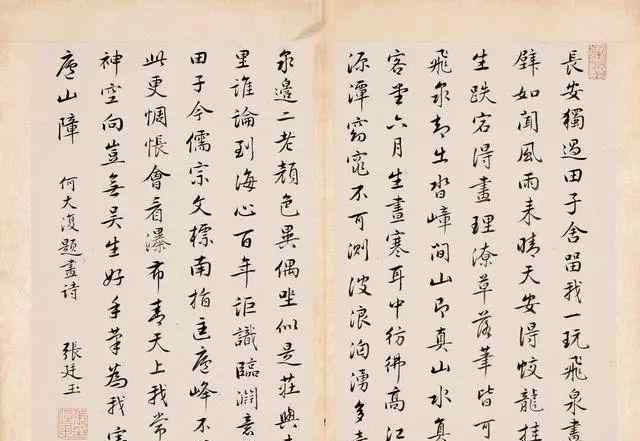 長安獨過田子舍留我一玩飛泉畫
壁如聞風雨来晴天安得蛟龍挂
生跌宕得畫理潦草落筆皆可
飛泉却出沓嶂間山即真山水真
客堂六月生晝寒耳中彷彿高江
源潭窈窕不可測波浪洶湧多
泉邊二老顔色異偶坐似是莊與
里誰論到海心百年詎識臨淵意
田子今儒宗文標南指匡廬峰不
此更惆悵會看瀑布青天上我常
神空向豈無吳生好手筆為我寫
廬山障
何大復題畫詩
張廷玉